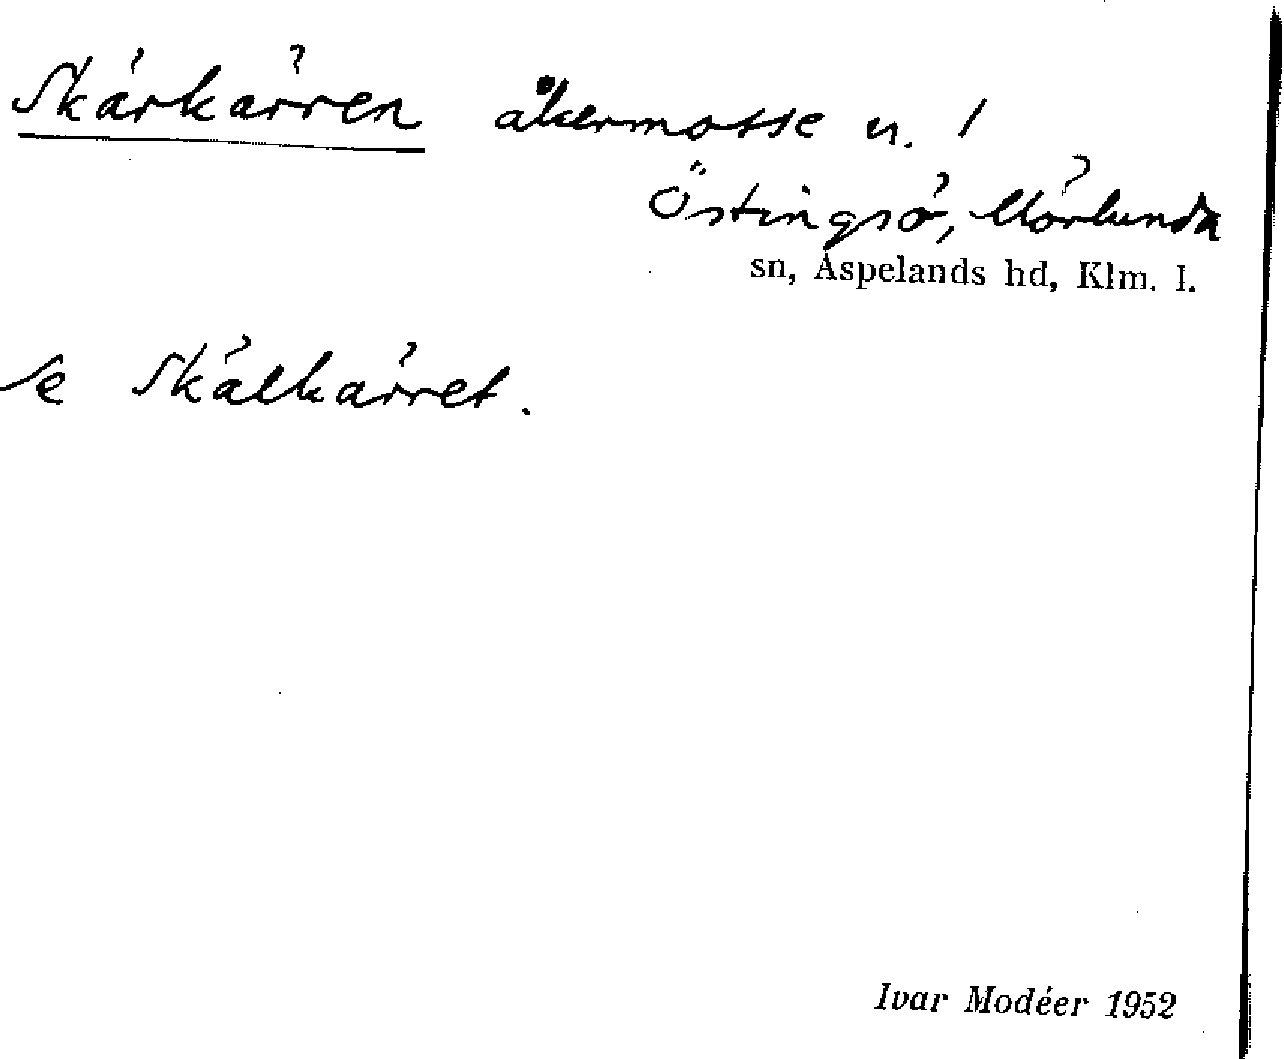 Skärkärren åkermosse n. 1
Östingsö, Mörlunda
sn, Aspelands hd, Klm. l.
se Skälkärret.
Ivar Modéer 1952